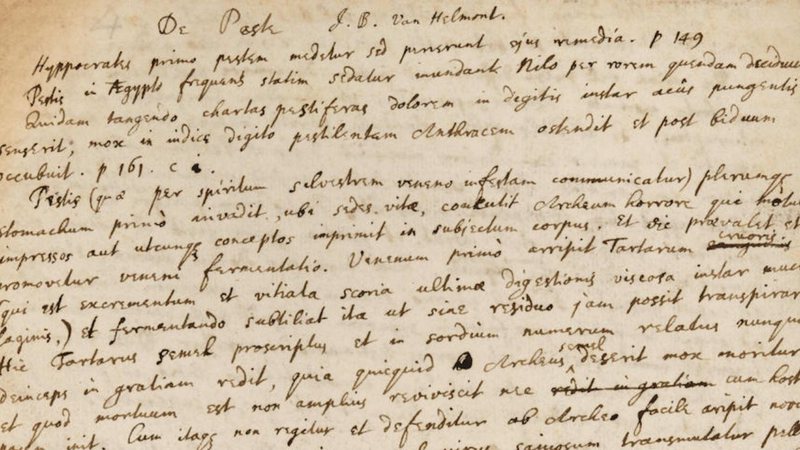 De Peste J. B. Van Helmont.
Hyppocrates primo pestem medetur sed perierunt ejus remedia. p 149
Pestis in Ægypto frequens statim sedatur inundante Nilo per rorem quendam deciduu
Quidam tangendo chartas pestiferas dolorem in digitis instar acûs pungentis
senserit, mox in indice digito pestilentem Anthracem ostendit et post biduum
occubuit. p 161. c
Pestis (quæ per spiritum silvestrem veneno infestam communicatur) plerumqꝫ
stomachum primò invadit, ubi sedes vitæ, concutit Archeum horrore qui motus
impressos aut utcunqꝫ conceptos imprimit in subjectum corpus. Et sic prævalet et
promovetur veneni fermentatio. Venenum primò arripit Tartarum sanguinis cruoris
(qui est excrementum et vitiata scoria ultimæ digestionis viscosa instar muci
laginis,) et fermentando subtiliat ita ut sine residuo jam possit transpirar
Hic Tartarus semel proscriptus et in sordium numerum relatus nunqua
deinceps in gratiam redit, quia quicquid Archeus semel deserit mox moritur
et quod mortuum est non amplius reviviscit nec redit in gratiam cum host
pacem init. Cum itaqꝫ non regitur et defenditur ab Archeo facile aripit novu
transmutatur pell